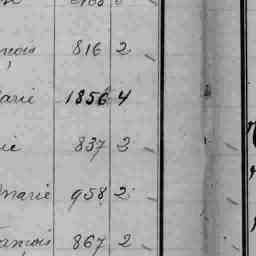 çois 816 2
arie 1856 4
ie 837 2
Marie 958 2
ançois 867 2